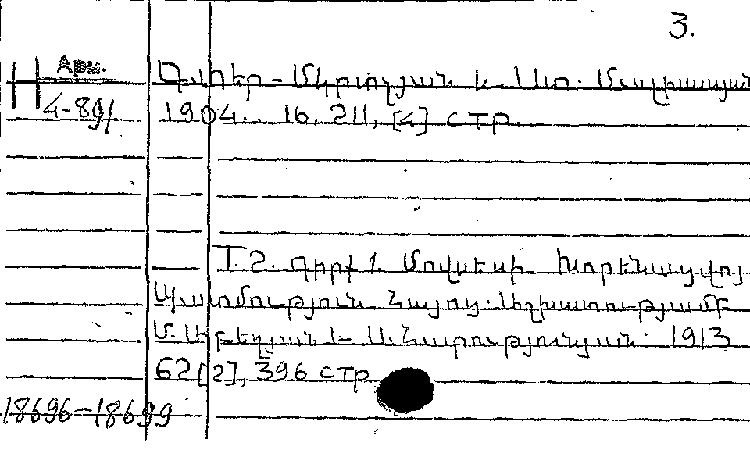 3.
Арм.
4-891
Գ. Տեր-Մկրտչյան և Ստ. Մալխասյան
1904. 16, 211, [4] стр.
Т 2. գիրք 1. Մովսէսի Խորենացվոյ
Պատմություն Հայոց. Աշխատությամբ
Մ. Աբեղյան և Ս. Հարությունյան. 1913
62[2], 396 стр
18696-18699